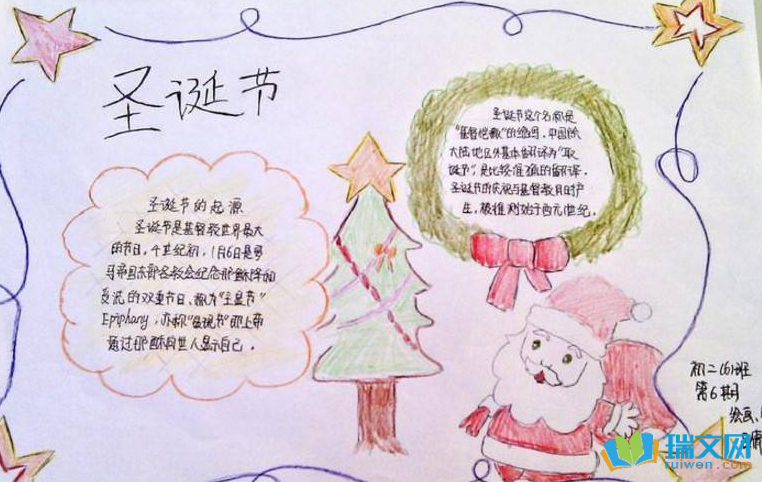 圣诞节
圣诞节的起源
圣诞节是基督教世界最大
的节日，4世纪初，1月6日是罗
马帝国东部各教会纪念耶稣降和
受洗的双重节日、称为"主显节"
Epiphany，亦称"显现节"即上帝
通过耶稣向世人显示自己。
圣诞节这个名称是
"基督弥撒"的缩写，中国除
大陆地区外基本翻译为"耶
诞节"，是比较准确的翻译。
圣诞节的庆祝与基督教同时产
生，被推测始于西元1世纪。
初二(6)班
第6期
瑞文网
ruiwen.com